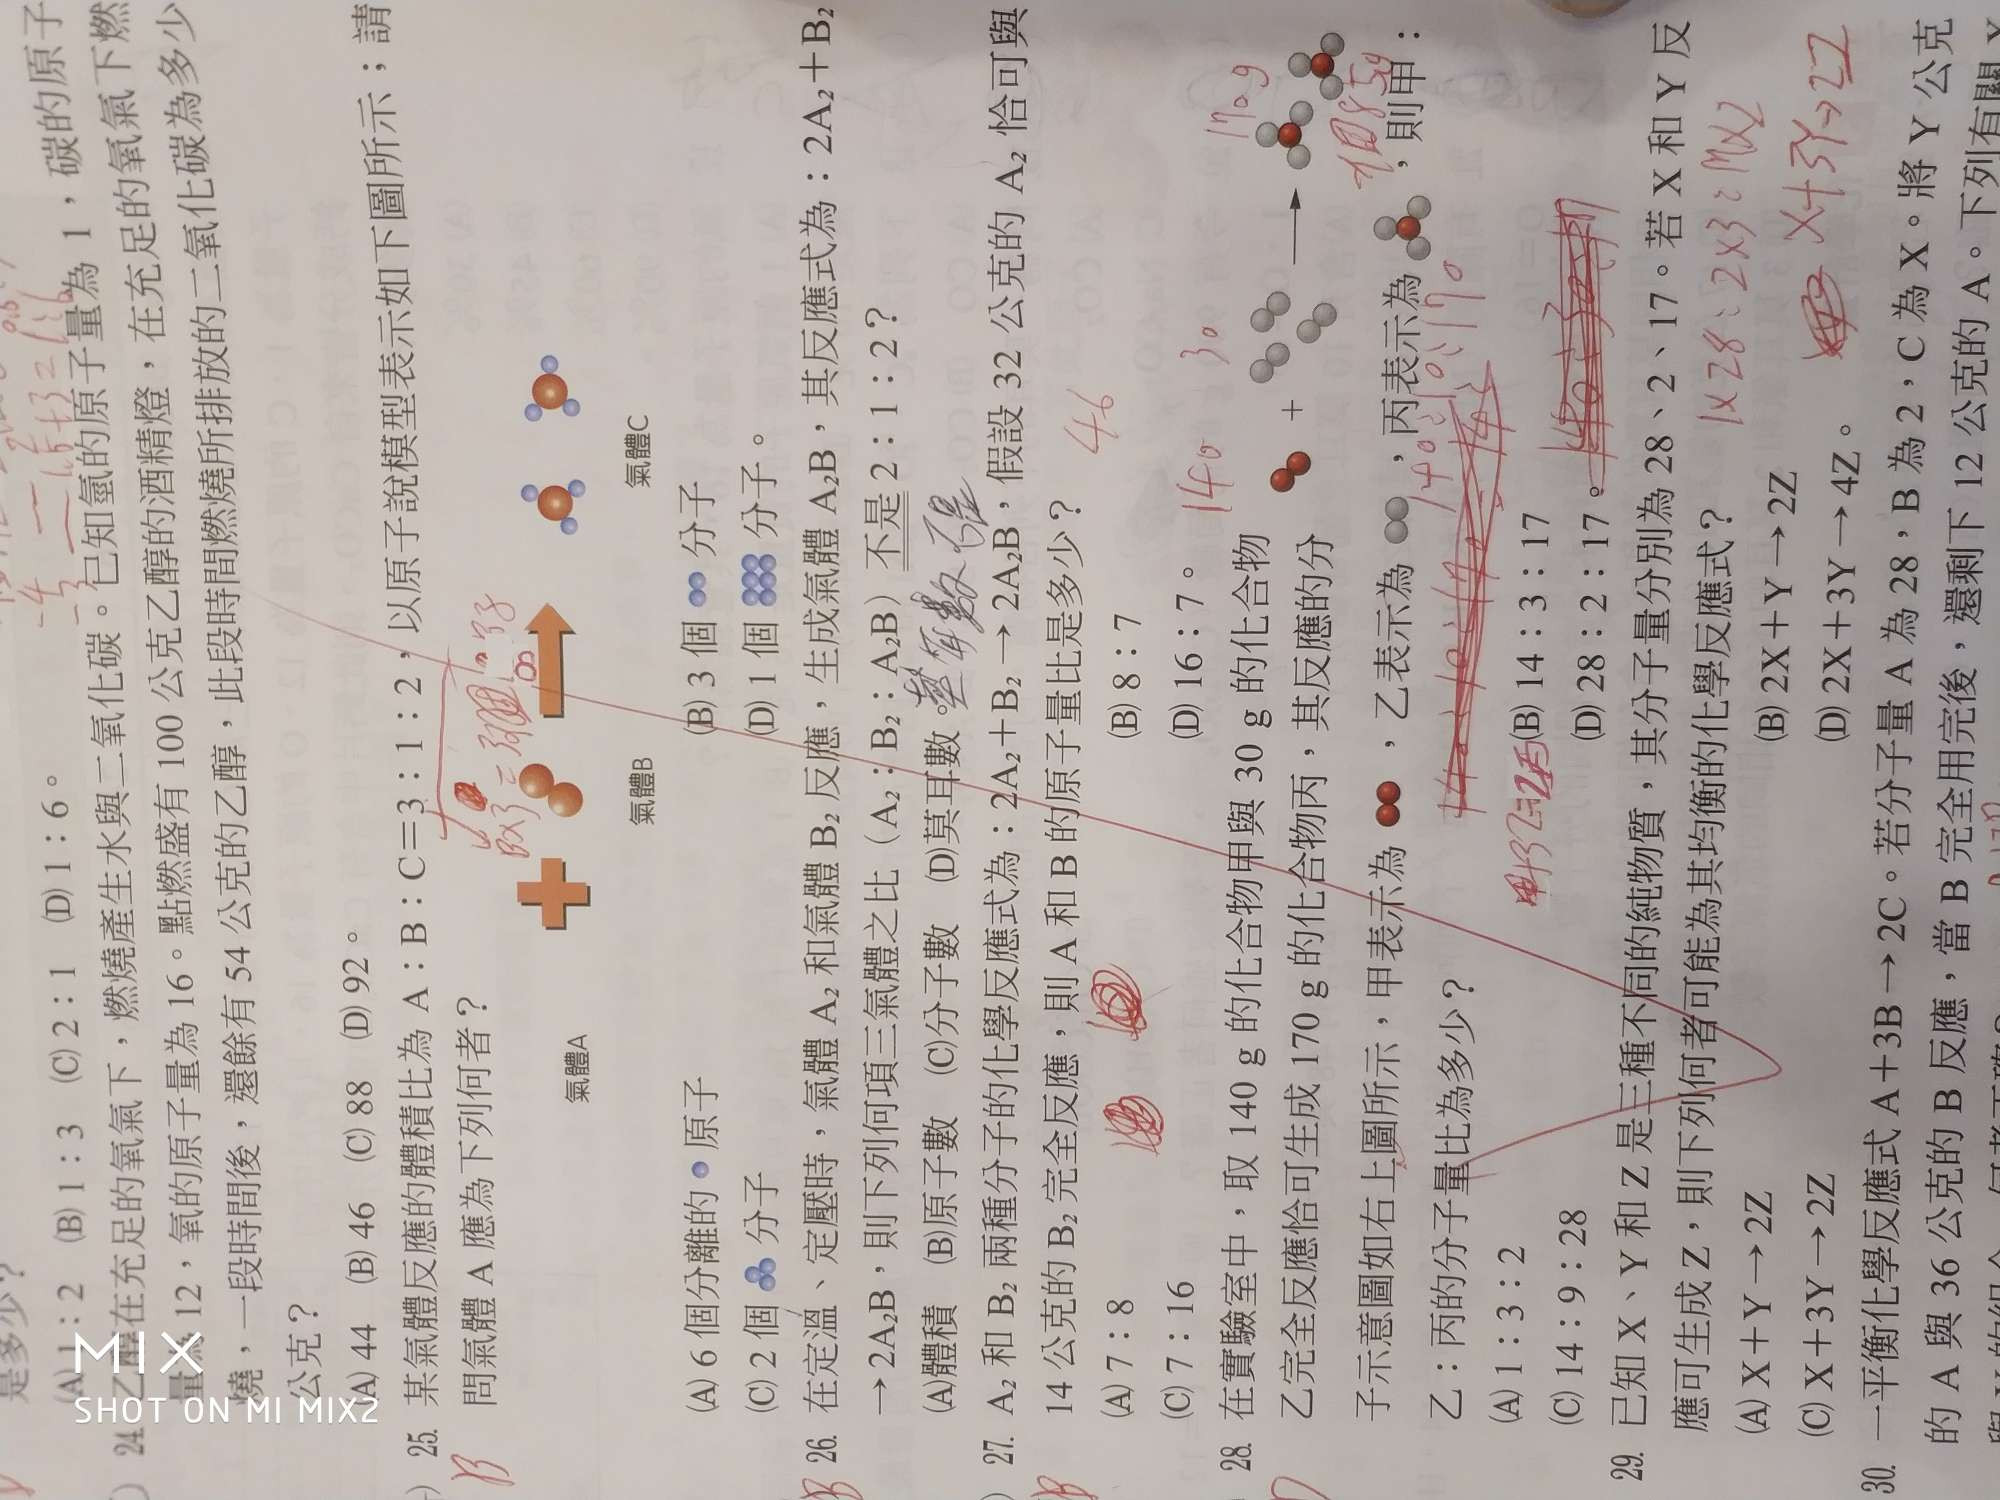 是多少？
(A) 1：2 (B) 1：3 (C) 2：1 (D) 1：6。
24. 乙醇在充足的氧氣下，燃燒產生水與二氧化碳。已知氫的原子量為 1，碳的原子
量為 12，氧的原子量為 16。點燃盛有 100 公克乙醇的酒精燈，在充足的氧氣下燃
燒，一段時間後，還餘有 54 公克的乙醇，此段時間燃燒所排放的二氧化碳為多少
公克？
(A) 44 (B) 46 (C) 88 (D) 92。
25. 某氣體反應的體積比為 A：B：C＝3：1：2，以原子說模型表示如下圖所示；請
問氣體 A 應為下列何者？
8
氣體A 氣體B 氣體C
(A) 6 個分離的 原子 (B) 3 個 分子
(C) 2 個 分子 (D) 1 個 分子。
B
26. 在定溫、定壓時，氣體 A₂ 和氣體 B₂ 反應，生成氣體 A₂B，其反應式為：2A₂＋B₂
→2A₂B，則下列何項三氣體之比（A₂：B₂：A₂B）不是 2：1：2？
(A)體積 (B)原子數 (C)分子數 (D)莫耳數。
B
27. A₂ 和 B₂ 兩種分子的化學反應式為：2A₂＋B₂→2A₂B，假設 32 公克的 A₂ 恰可與
14 公克的 B₂ 完全反應，則 A 和 B 的原子量比是多少？
46
(A) 7：8 (B) 8：7
(C) 7：16 (D) 16：7。
B
28. 在實驗室中，取 140 g 的化合物甲與 30 g 的化合物
140 30 170g
＋ →
乙完全反應恰可生成 170 g 的化合物丙，其反應的分
子示意圖如右上圖所示，甲表示為 ，乙表示為 ，丙表示為 ，則甲：
乙：丙的分子量比為多少？
甲+3乙=2丙
(A) 1：3：2 (B) 14：3：17
(C) 14：9：28 (D) 28：2：17。
29. 已知 X、Y 和 Z 是三種不同的純物質，其分子量分別為 28、2、17。若 X 和 Y 反
應可生成 Z，則下列何者可能為其均衡的化學反應式？
(A) X＋Y→2Z (B) 2X＋Y→2Z
(C) X＋3Y→2Z (D) 2X＋3Y→4Z。
X+3Y→2Z
30. 一平衡化學反應式 A＋3B→2C。若分子量 A 為 28，B 為 2，C 為 X。將 Y 公克
的 A 與 36 公克的 B 反應，當 B 完全用完後，還剩下 12 公克的 A。下列有關 X
MIX
SHOT ON MI MIX2